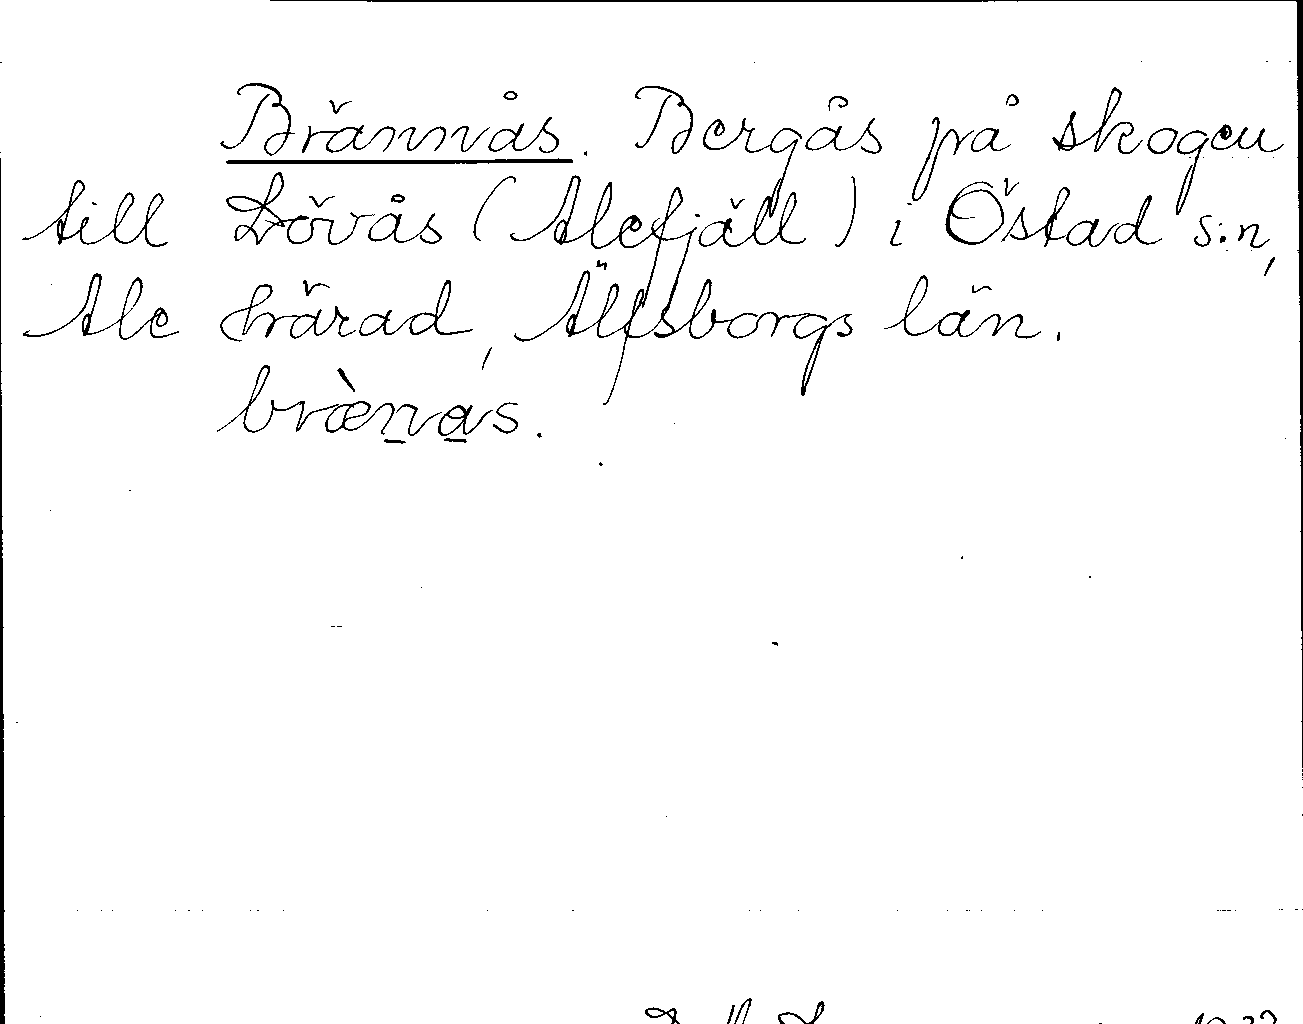 Brännås. Bergås på skogen
till Lövås (Alefjäll) i Östad s:n,
Ale härad, Älfsborgs län.